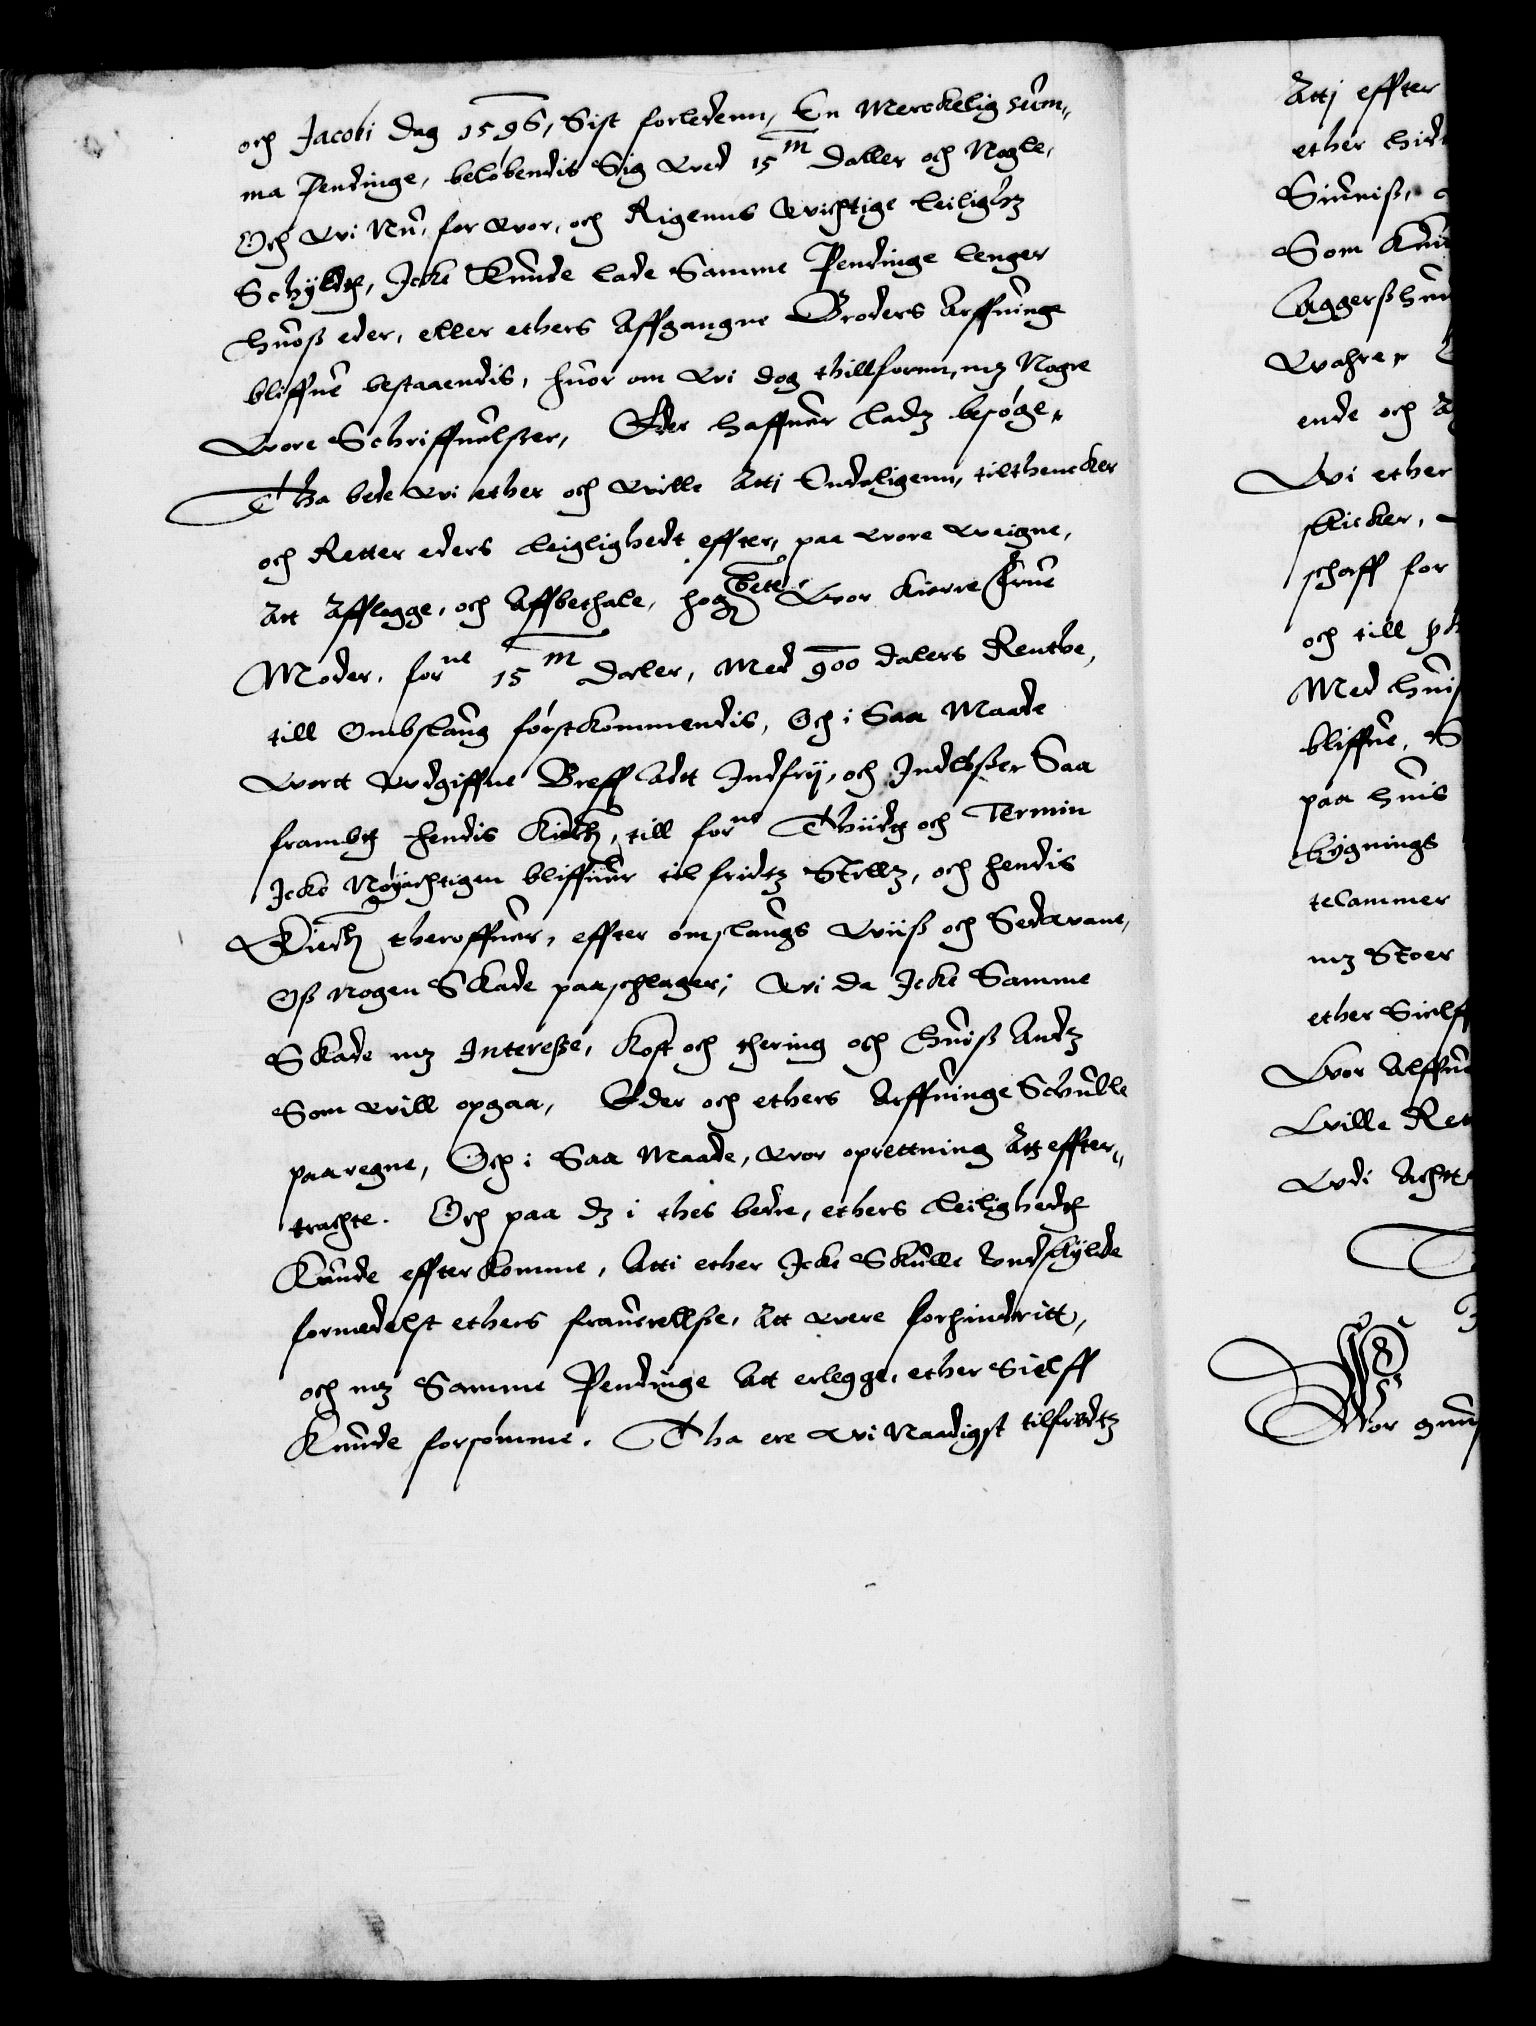 och Jacobi dag 1596, Sist forledenn, En Merckelig sum„
ma Pendinge, beløbendis Sig ved 15m daller och Nogle,
Och vi Nu, for vor, och Rigenns vichtige leiligh⟨tz⟩
Schyldh, Icke Kunde lade Samme Pendinge lenger
hnoß eder, eller ethers Affgangne Broders Arffuinge
bliffue bestaaendis, huor om vi dog thillforenn, mz Nogre
Vore Schriffuelßer, Eder haffuer ladz besøge,
Tha bede vi ether och ville Atj Endeligenn, tilthencker
och Retter eders Leiglighedt effter, paa vore veigne,
Att Afflegge, och Affbethale, hogbete Vor Kierre Frue
Moder, forne 15m daler, Med 900 dalers Rentthe,
till Ombslaug førstkommendis, Och i Saa Maade
Vortt vdgiffne Breff Adt Indfrij, och Indløßer Saa
frambt hendis Kierh, till forne Thiidt och Termin
Icke Nøyachtigen bliffuer til fridtz Stellz, och hendis
Kierh theroffuer, effter omslaugs Viiß och Sedvane,
Oß nogen Skade paaschlager, Vi da Icke Samme
Skade mz Interesse, Kost och thering och huiß Andz
Som vill opgaa, Eder och ethers Arffuinge Schulle
paaregne, Och i Saa Maade, vor oprettning Att effter„
trachte. Och paa dz i thes bedre, ethers Leilighedt
Kunde effterkomme, Atti ether Icke Skulle Vndskylde
formedelst ethers frauerellße, Att vere forhindritt,
och mz Samme Pendinge Att erlegge, ether Sielff
Kunde forsømme. Tha ere vi Naadigst tilfredtz
Attj effter
ether hid
Sinniß,
Som
Aggerßhuu
Vahre,
ende och
Vi ether
skicker,
schaff for
och till
Med huiß
bliffue, S
paa huis
bygnings
telammer
mz Stoer
ether Sielff
Vor Alffu
Ville Ret
Vdi Acht
Wor gunst